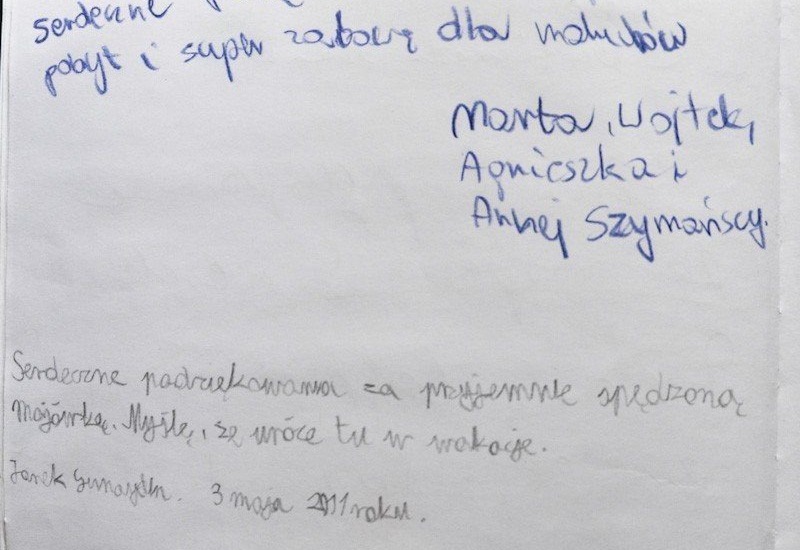 serdeczne
pobyt i super zabawę dla maluchów
Marta, Wojtek,
Agnieszka i
Andrzej Szymańscy.
Serdeczne podziękowania za przyjemnie spędzoną
majówkę. Myślę, że wrócę tu w wakacje.
Jarek 3 maja 2011 roku.